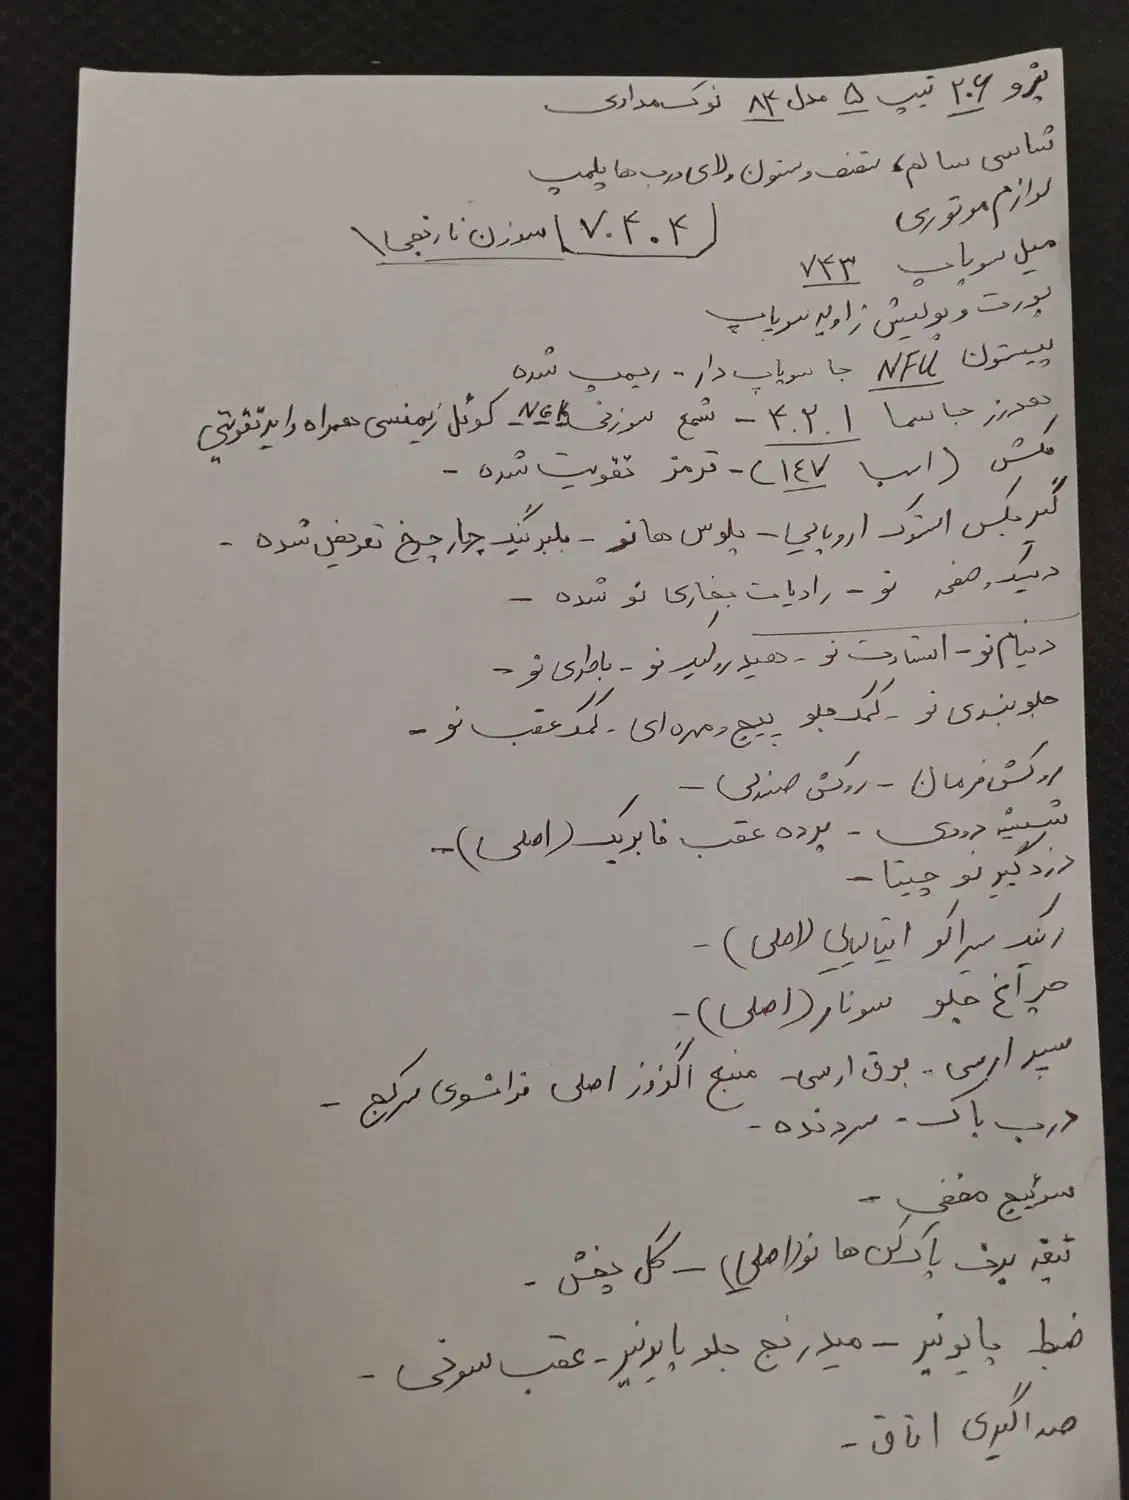 پژو ۲۰۶ تیپ ۵ مدل ۸۴ نوک مدادی
شاسی سالم، سقف و ستون و لای درب ها پلمپ
لوازم موتوری
۷.۴.۴ سوزن نارنجی
میل سوپاپ ۷۴۳
پورت و پولیش زاویه سوپاپ
پیستون NFU جا سوپاپ دار - ریمپ شده
هدرز جاسما ۴.۲.۱ - شمع سوزنی NGK کوئل زیمنسی همراه وایر تقویتی
مکش (اسبا ۱۴۷) - ترمز تقویت شده -
گیربکس استوک اروپایی - پلوس ها نو - بلبرینگ چهار چرخ تعویض شده -
دیسک و صفحه نو - رادیات بخاری نو شده -
دینام نو - استارت نو - هیدرولیک نو - باطری نو -
جلوبندی نو - کمک جلو پیچ و مهره ای - کمک عقب نو -
روکش فرمان - روکش صندلی -
شیشه دودی - پرده عقب فابریک (اصلی) -
دزدگیر نو چیتا -
رینگ سراکو ایتالیایی (اصلی) -
چراغ جلو سونار (اصلی) -
سپر ارسی - بوق ارسی - منبع اگزوز اصلی فرانسوی سرکج -
درب باک - سردنده -
سوئیچ مخفی -
تیغه برف پاک کن ها نو (اصلی) - گل پخش -
ضبط پایونیر - میدرنج جلو پایونیر - عقب سونی -
صداگیری اتاق -